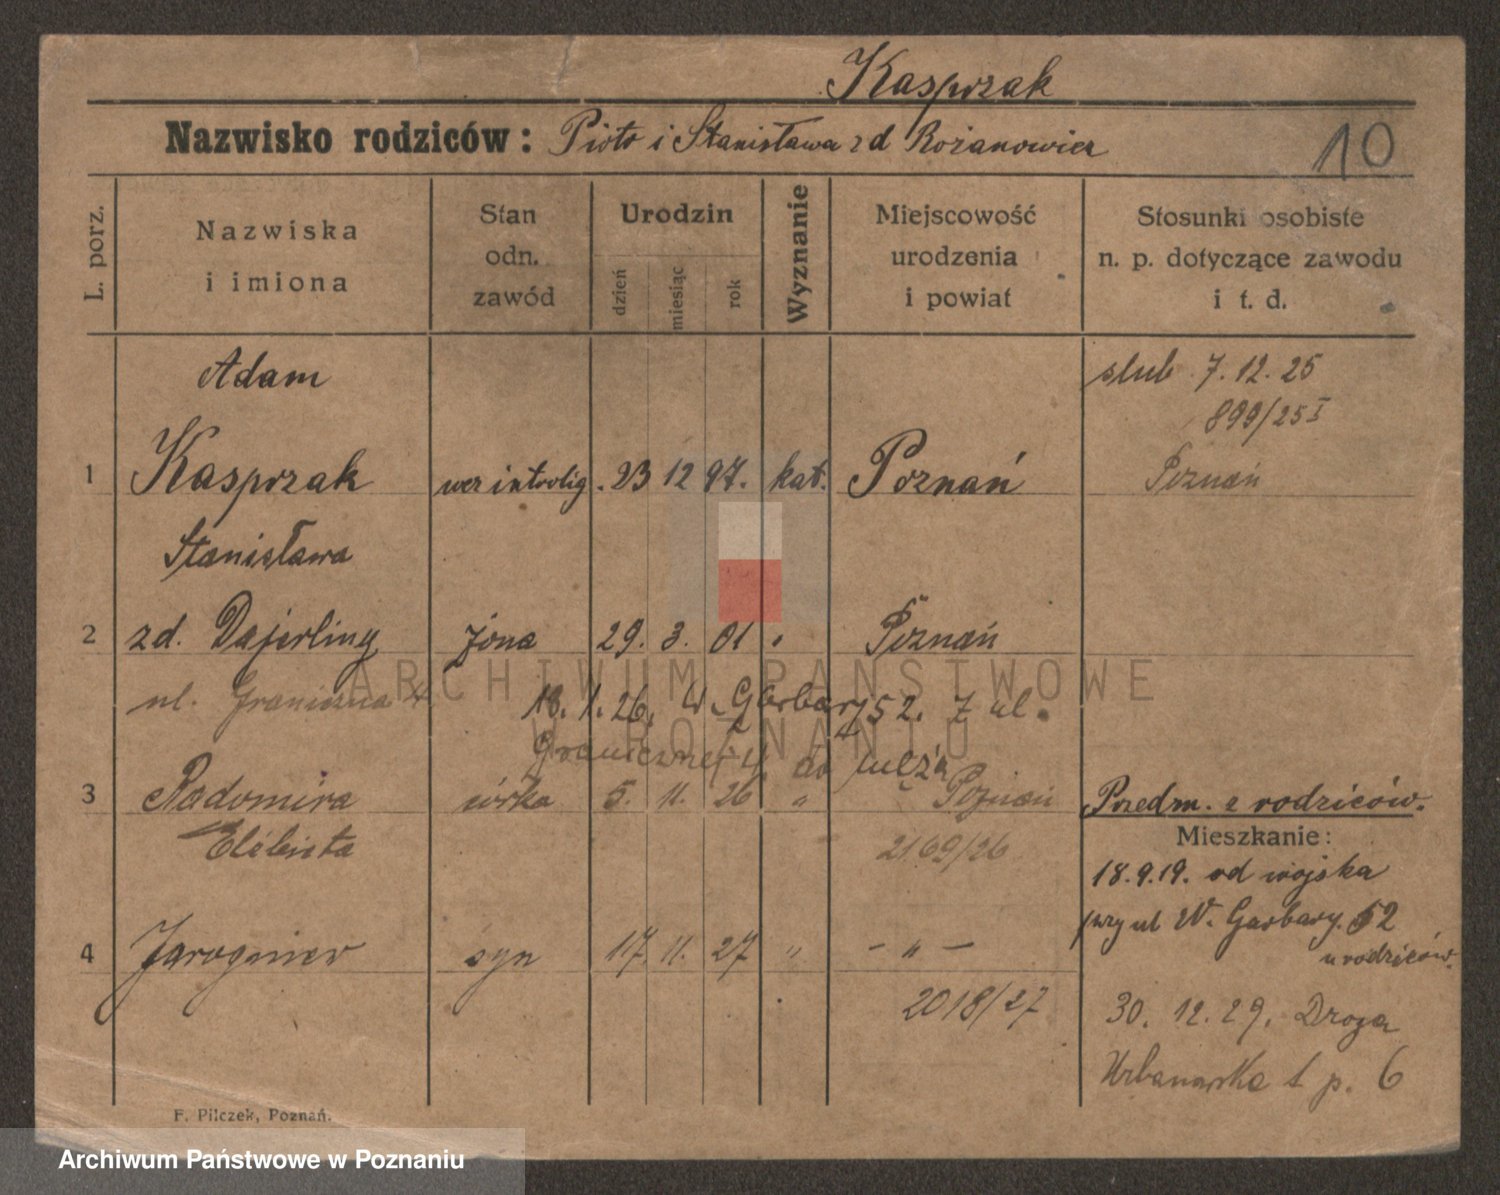 Kasprzak
Nazwisko rodziców: Piotr i Stanisława zd Rożanowicz
10
L. porz.
Nazwiska
i imiona
Stan
odn.
zawód
Urodzin
dzień
miesiąc
rok
Wyznanie
Miejscowość
urodzenia
i powiat
Stosunki osobiste
n. p. dotyczące zawodu
i t. d.
Adam
ślub 7.12.25
899/25 I
1 Kasprzak introlig. 23 12 97. kat. Poznań Poznań
Stanisława
2 zd. Dajerling żona 29. 3. 01 " Poznań
ul. Graniczna 4
18.1.26. W. Garbary 52. z ul.
Granicznej 4. do męża
3 Radomira córka 5. 11. 26 " Poznań Przedm. z rodziców.
Elżbieta 2169/26
Mieszkanie:
18.9.19. od wojska
przy ul W. Garbary. 52
u rodziców.
4 Jarogniew syn 17. 11. 27 " - " -
2018/27
30. 12. 29. Droga
Urbanowska 1 p. 6
F. Pilczek, Poznań.
ARCHIWUM PAŃSTWOWE
W POZNANIU
Archiwum Państwowe w Poznaniu